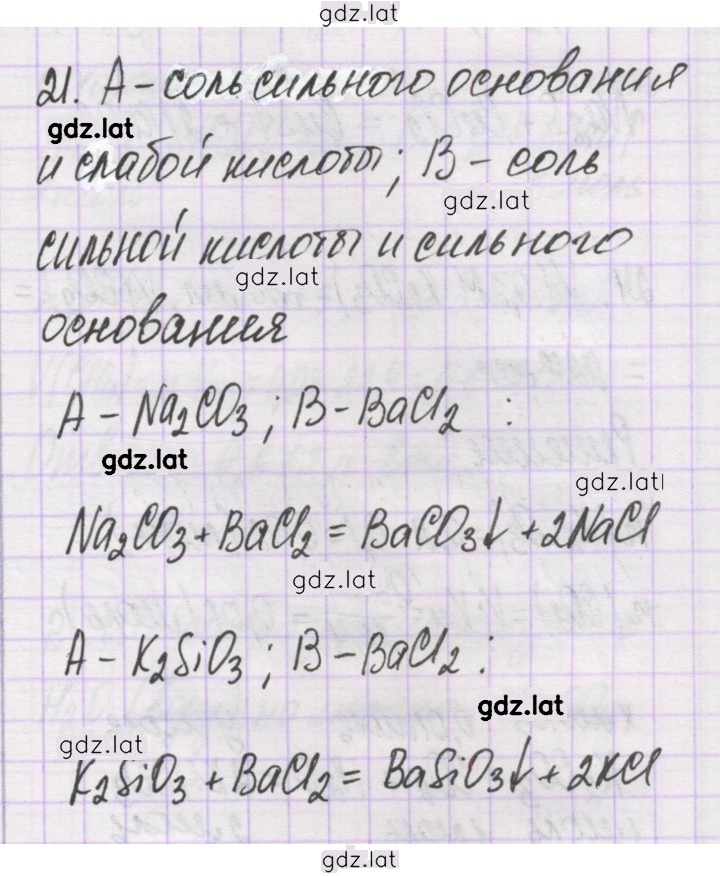 gdz.lat
21. А - соль сильного основания
gdz.lat
и слабой кислоты; В - соль
gdz.lat
сильной кислоты и сильного
gdz.lat
основания
A - Na₂CO₃; B - BaCl₂ :
gdz.lat
gdz.lat
Na₂CO₃ + BaCl₂ = BaCO₃↓ + 2NaCl
gdz.lat
A - K₂SiO₃; B - BaCl₂ :
gdz.lat
gdz.lat
K₂SiO₃ + BaCl₂ = BaSiO₃↓ + 2KCl
gdz.lat